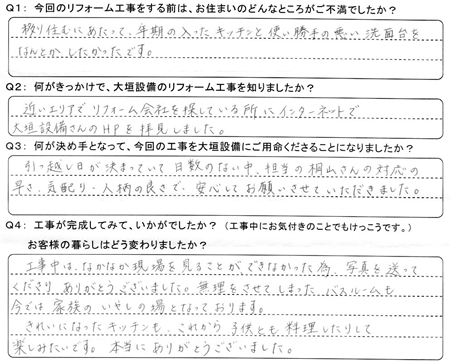 Q1: 今回のリフォーム工事をする前は、お住まいのどんなところがご不満でしたか？
移り住むにあたって、年期の入ったキッチンと使い勝手の悪い洗面台を
なんとかしたかったです。
Q2: 何がきっかけで、大垣設備のリフォーム工事を知りましたか？
近いエリアでリフォーム会社を探している所にインターネットで
大垣設備さんのHPを拝見しました。
Q3: 何が決め手となって、今回の工事を大垣設備にご用命くださることになりましたか？
引っ越し日が決まっていて日数のない中、担当の桐山さんの対応の
早さ、気配り・人柄の良さで、安心してお願いさせていただきました。
Q4: 工事が完成してみて、いかがでしたか？（工事中にお気付きのことでもけっこうです。）
お客様の暮らしはどう変わりましたか？
工事中は、なかなか現場を見ることができなかった為、写真を送って
くださり、ありがとうございました。無理をさせてしまったバスルームも
今では家族のいやしの場となっております。
きれいになったキッチンも、これから子供とも料理したりして
楽しみたいです。本当にありがとうございました。